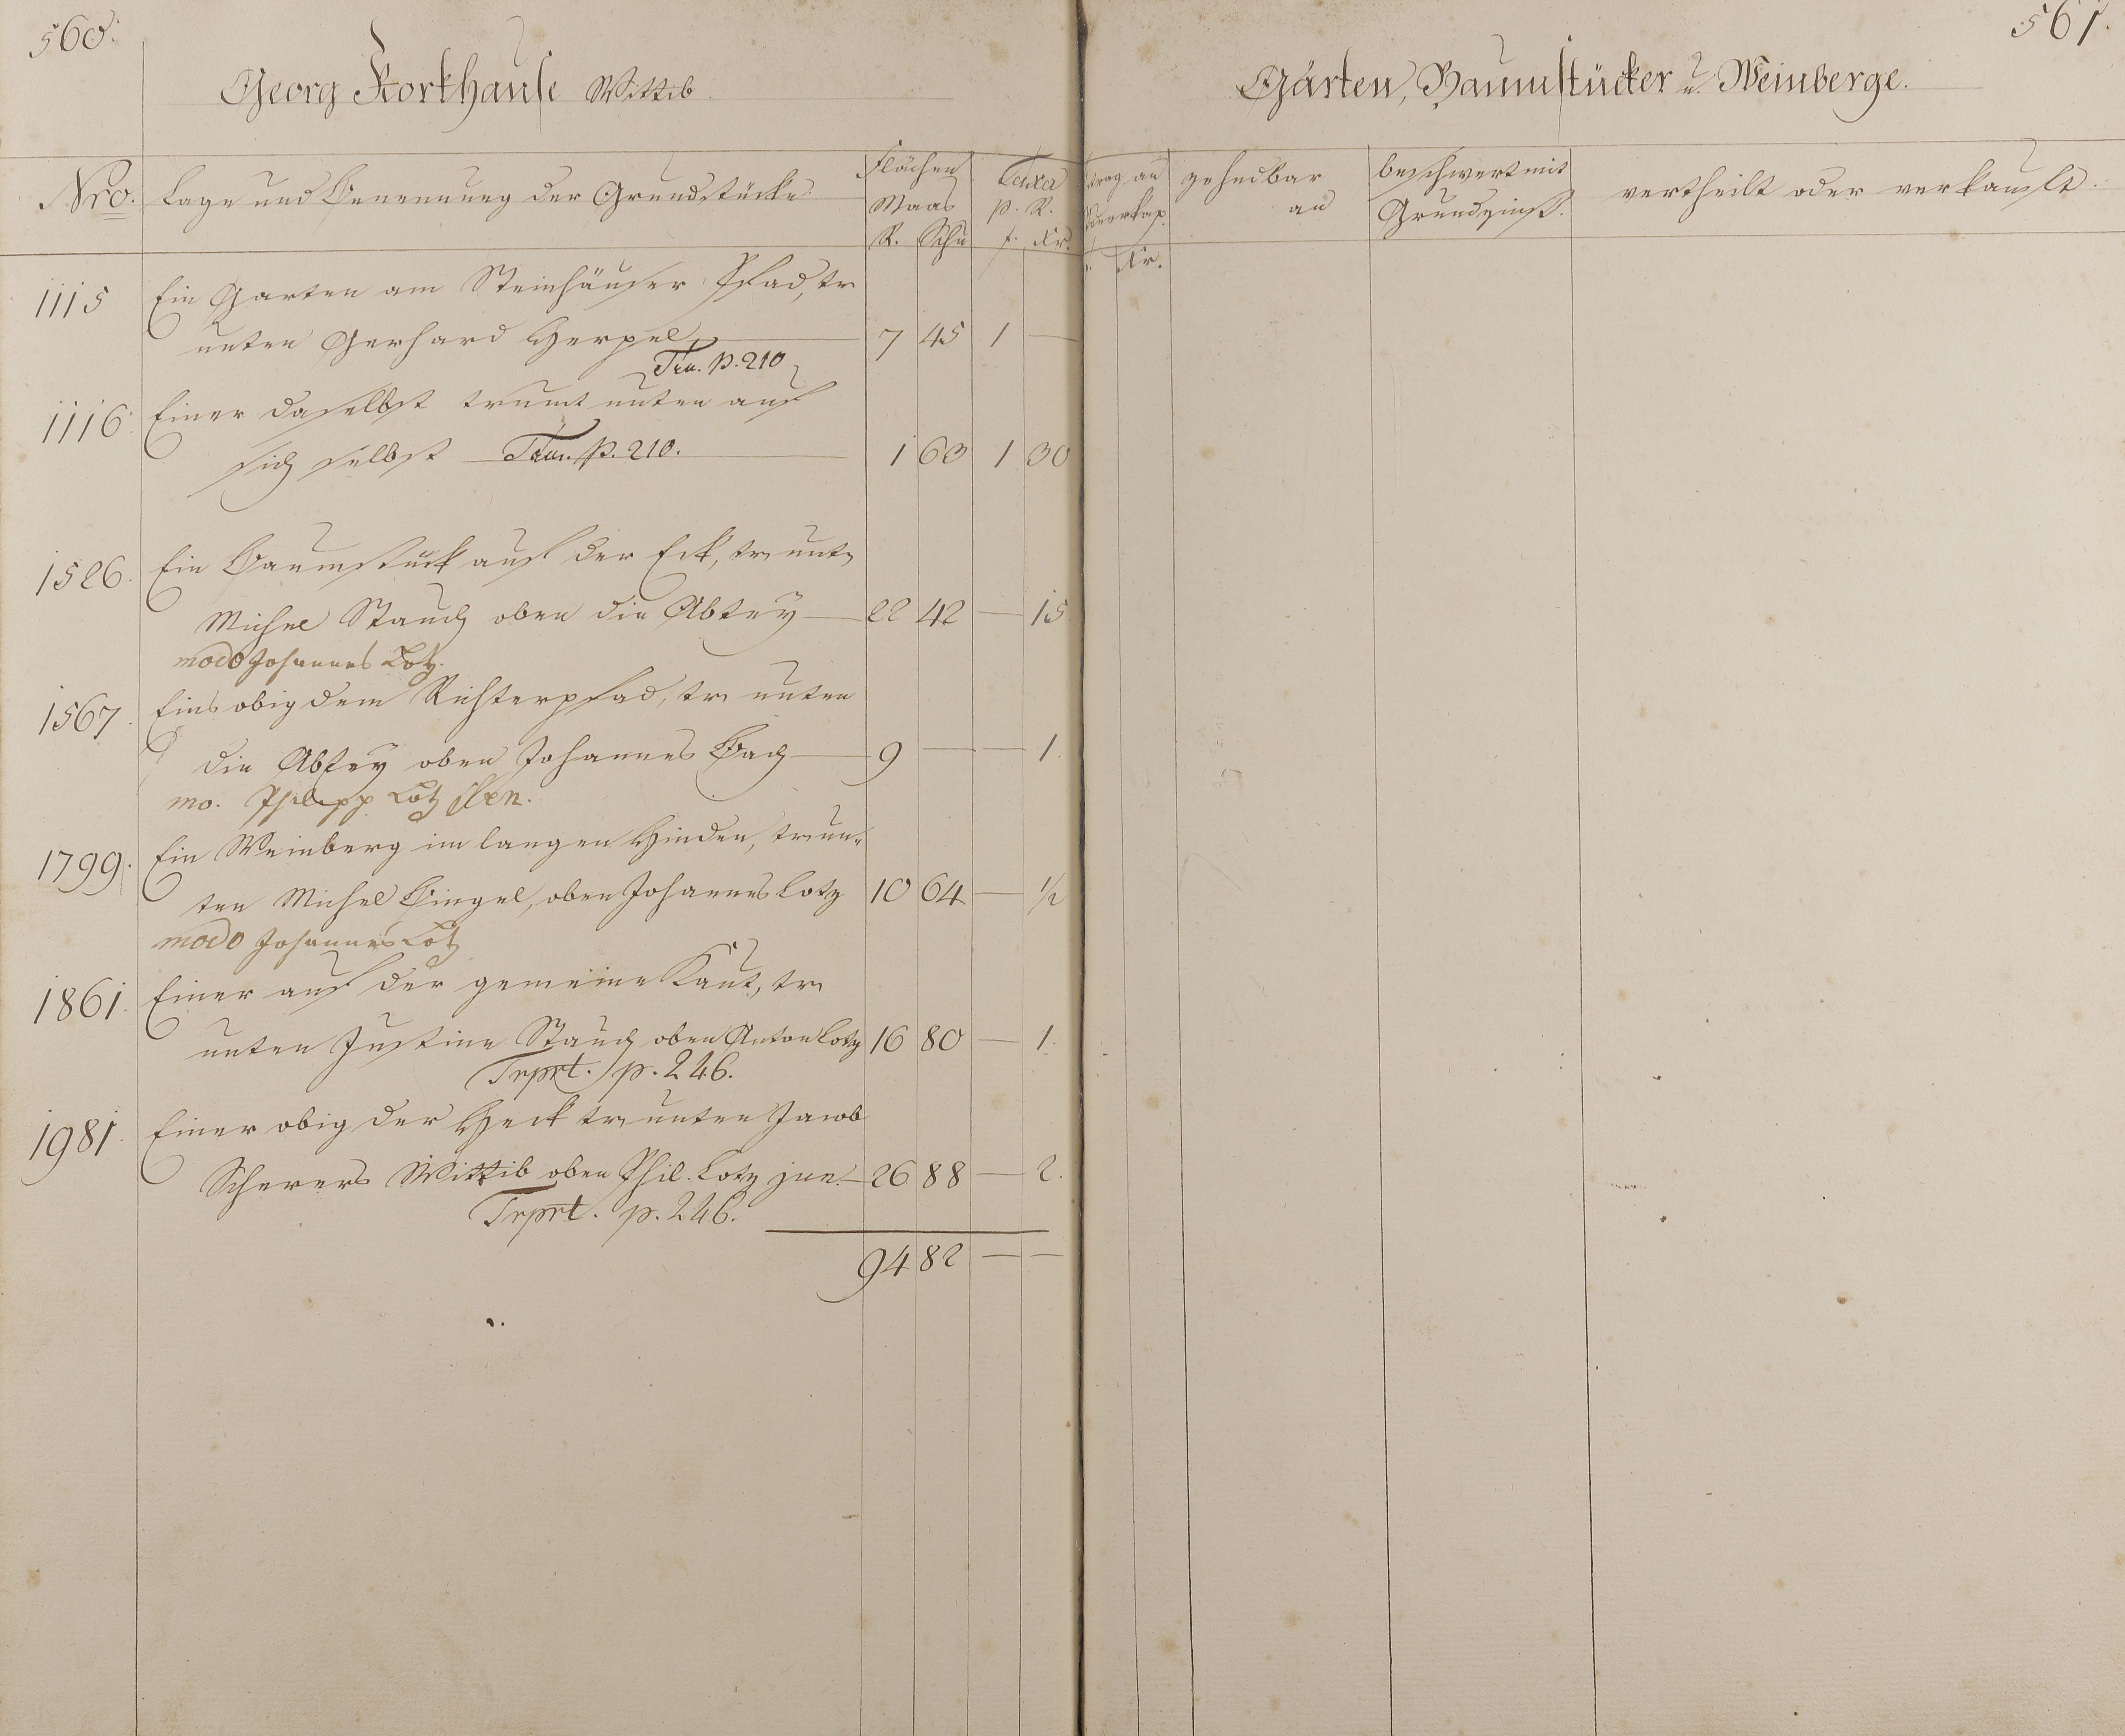 560.
Georg Storkhause Wittib
Nro.
Lage und Benennung der Grundstücke
Flächen
Maas
R. Schu
Taxa
p. R.
f. Kr.
1115 Ein Garten am Steinhäuser Pfad, tr.
unten Gerhard Herpel, 7 45 1 —
Trn. p. 210
1116. Einer daselbst trumt unten auf
sich selbst — Trn. p. 210. 1 63 1 30
1526. Ein Baumstück auf der Eck, tr. unt.
Michel Stauch oben die Abtey — 22 42 — 15
modo Johannes Lotz.
1567. Eins obig dem Richterpfad, tr. unten
die Abtey oben Johannes Bach — 9 — — 1.
mo. Philipp Lotz sen.
1799. Ein Weinberg im langen Hinden, tr. un-
ten Michel Bingel, oben Johannes Lotz 10 64 — 1/2
modo Johannes Lotz
1861. Einer auf der gemeine Kaut, tr.
unten Justine Stauch oben Anton Lotz 16 80 — 1.
Trprt. p. 246.
1981. Einer obig der Heck tr. unten Jacob
Scherers Wittib oben Phil. Lotz jun. — 26 88 — 2.
Trprt. p. 246.
94 82 — —
561.
Gärten, Baumstücker u. Weinberge.
trag an
Steuerkap.
f. Kr.
zehndbar
an
beschwert mit
Grundzinß.
vertheilt oder verkauft.